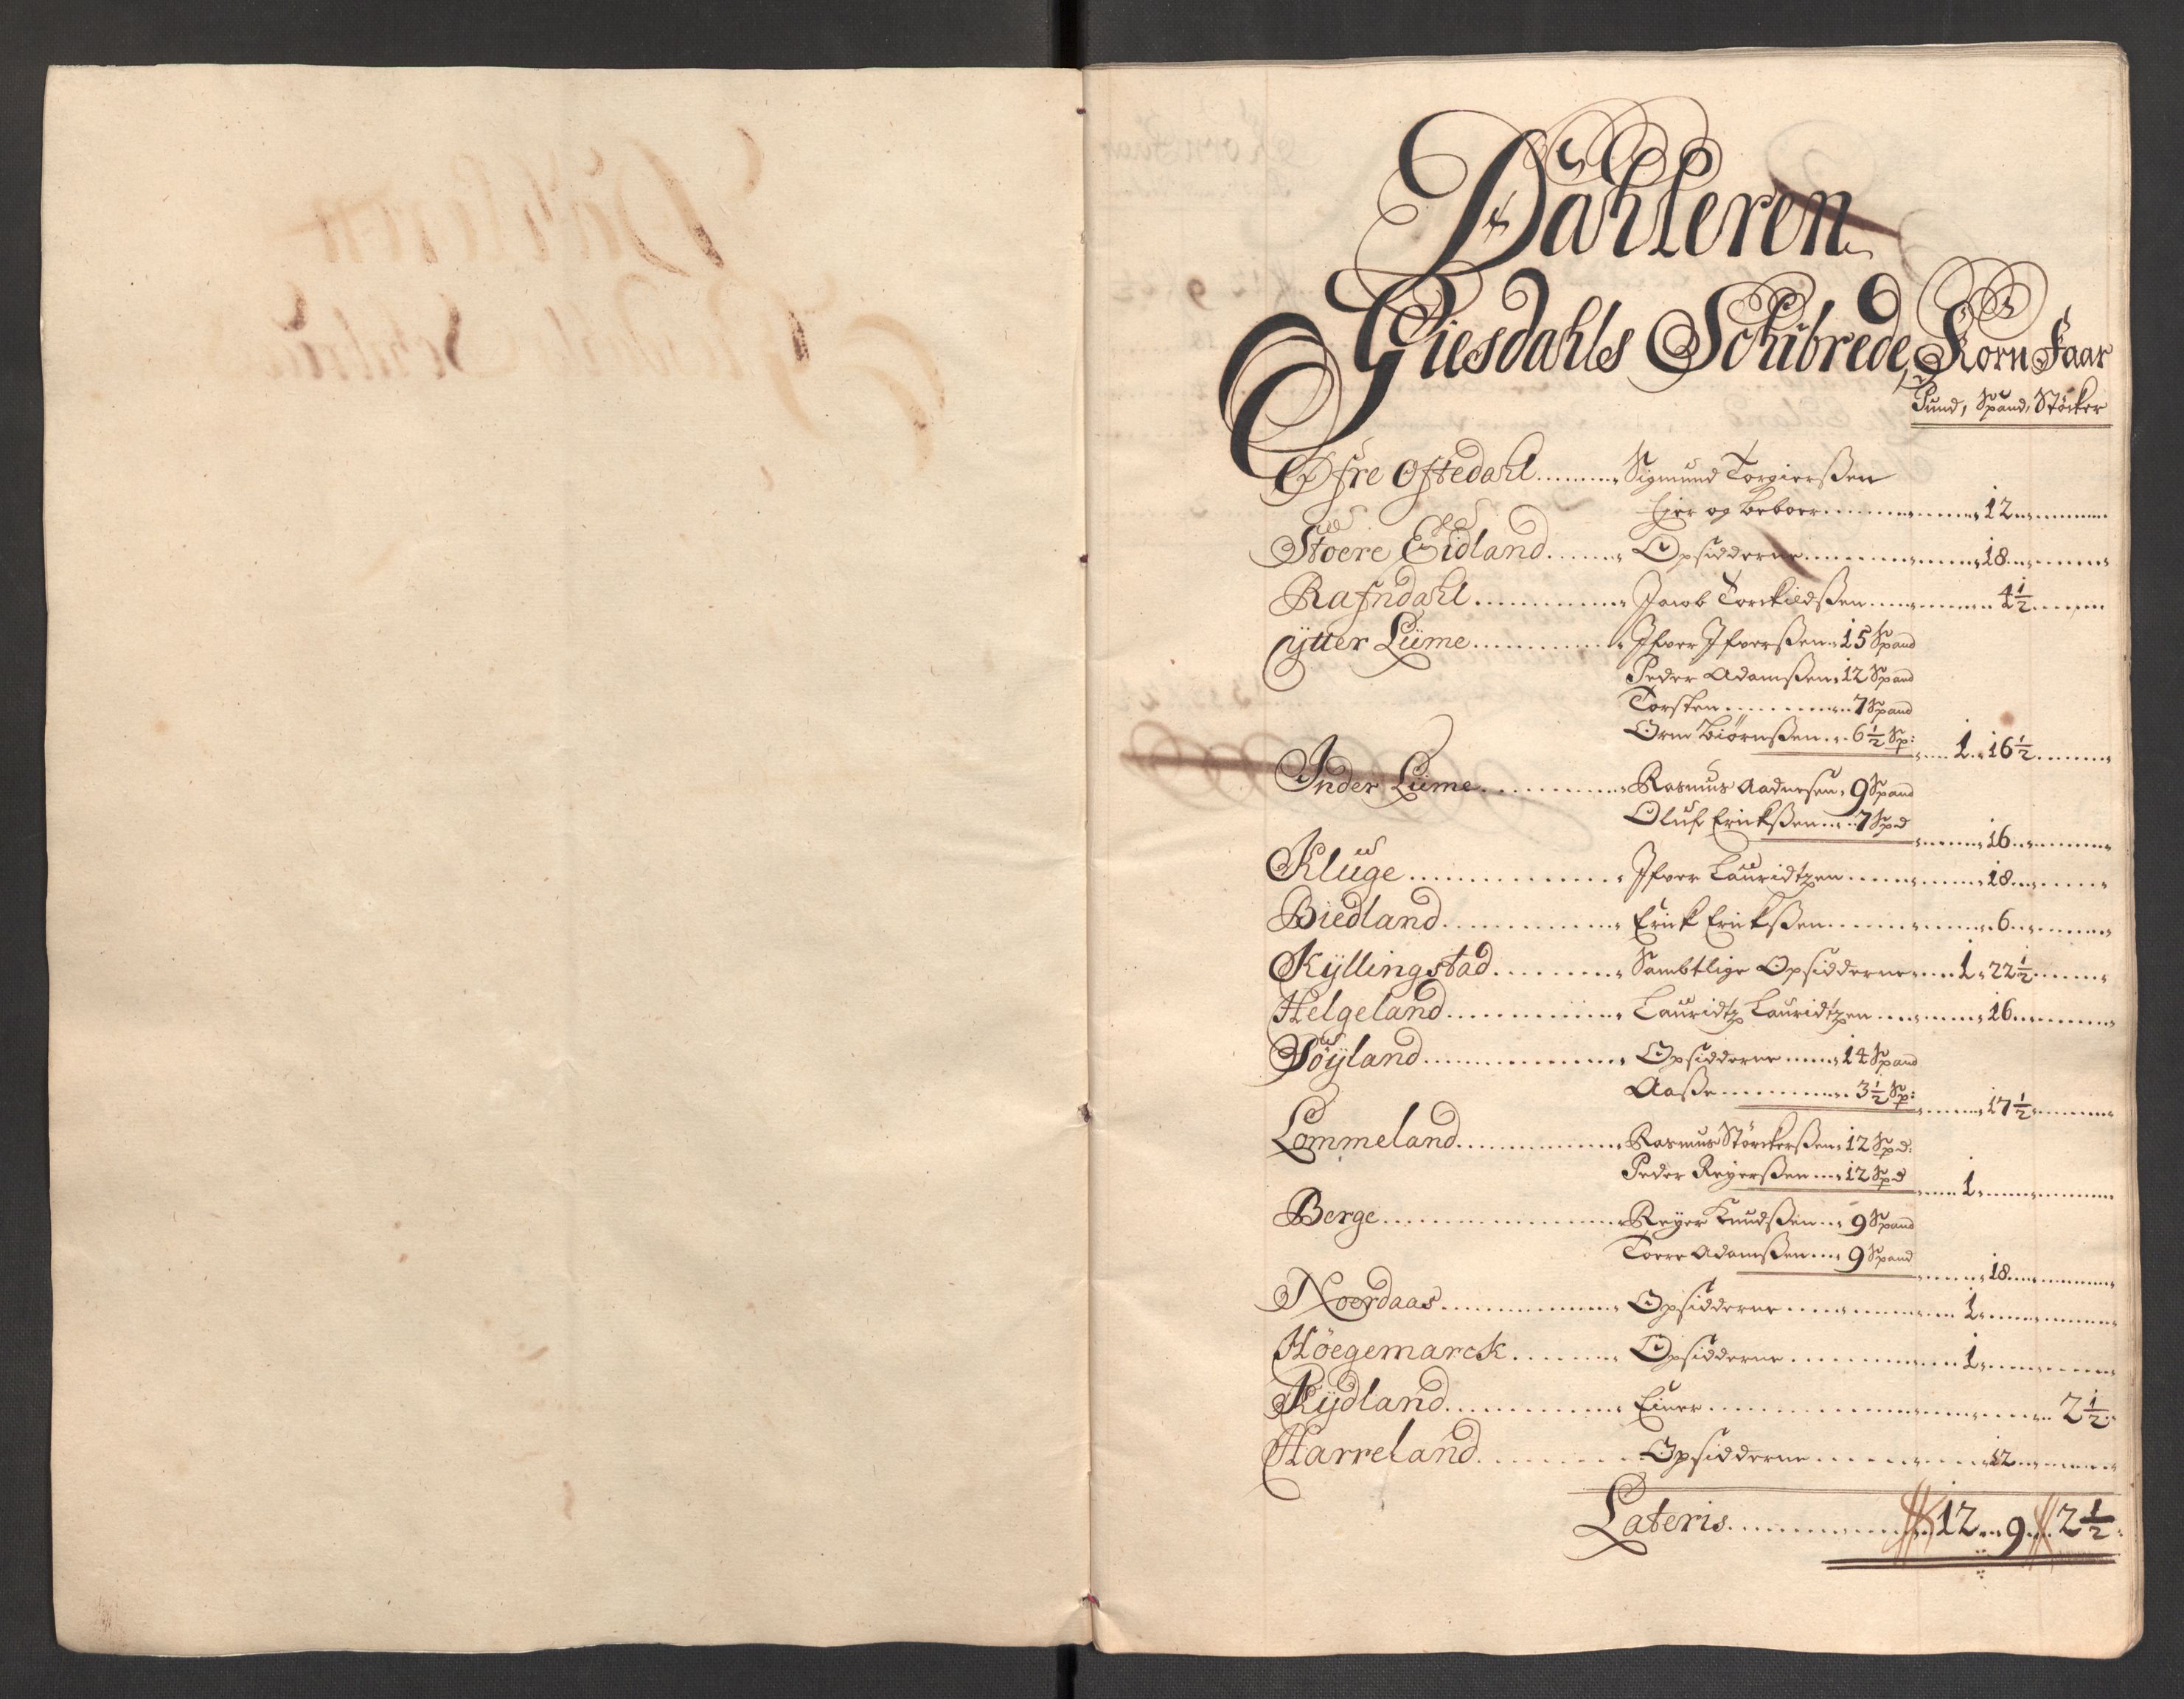 Dahleren
Giesdahls Schibrede, Korn Faar
Pund, Spand, Støcker
Øfre Oftedahl ........ Sigmund Torgierßen
Ejer og beboer ........ 12 ........
Stoere Eidland ...... Opsidderne ........ 18 ........
Rafndahl ............ Jacob Torckildßen ........ 4 1/2 ........
ÿtter Lüme ............ Ifver Ifverßen .. 15 Spand
Peder Adamßen 12 Spand
Torsten ........ 7 Spand
Orm Biørnßen .. 6 1/2 Sp: .... 1 .. 16 1/2 ........
Inder Lüme ............ Rasmus Aadnesen, 9 Spand
Oluf Erickßen .... 7 Spd ........ 16 ........
Kluge ............ Ifver Lauridtzen ........ 18 ........
Biedland ............ Erick Erickßen ........ 6 ........
Kÿllingstad ........ Sambtlige Opsidderne .... 1 .. 22 1/2 ........
Helgeland ............ Lauridtz Lauridtzen ........ 16 ........
Søÿland ............ Opsidderne .... 14 Spand
Aaße ........ 3 1/2 Sp: ........ 17 1/2 ........
Lommeland ............ Rasmus Størckerßen 12 Spd:
Peder Reÿerßen .. 12 Spd .... 1 ........
Berge ............ Reÿer Knudßen .. 9 Spand
Toere Adamßen .. 9 Spand ........ 18 ........
Noerdaas ............ Opsidderne ........ 1 ........
Høegemarck ........ Opsidderne ........ 1 ........
Rÿdland ............ Einer ........ 2 1/2
Harreland ........ Opsidderne ........ 12 ........
Lateris ........ 12 .. 9 .. 2 1/2